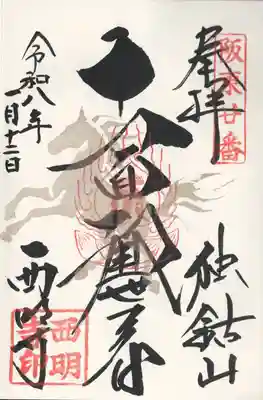 阪東廿番
奉拝
独鈷山
十一面観世音
令和八年
一月十二日
西明寺
西明寺印